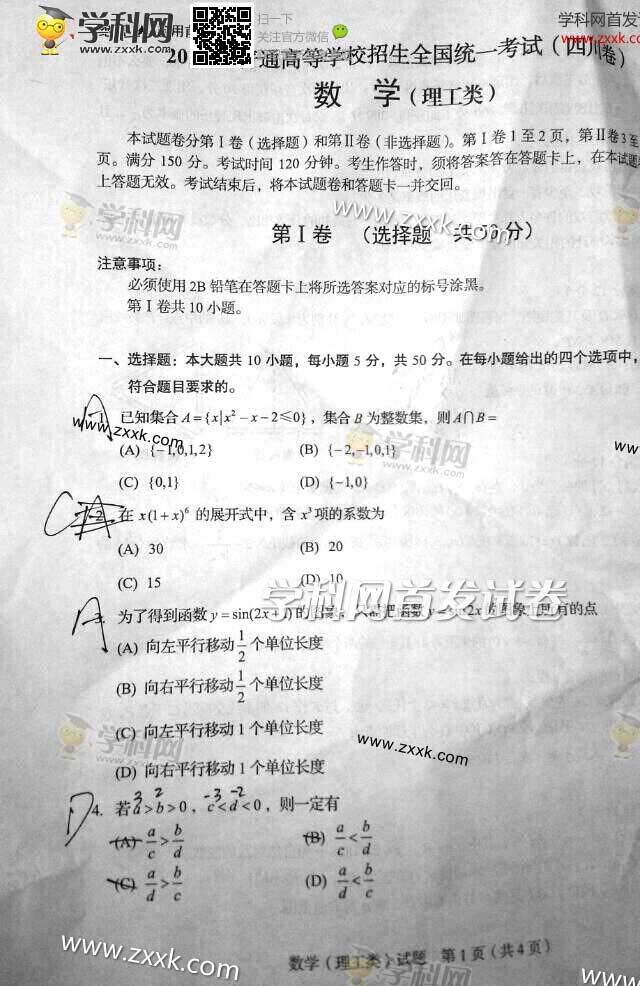 学科网
www.zxxk.com
扫一下
关注官方微信
学科网首发
www.zxxk.com
通高等学校招生全国统一考试（四川卷）
数 学（理工类）
本试题卷分第Ⅰ卷（选择题）和第Ⅱ卷（非选择题）。第Ⅰ卷1至2页，第Ⅱ卷3至
页。满分150分。考试时间120分钟。考生作答时，须将答案答在答题卡上，在本试题
上答题无效。考试结束后，将本试题卷和答题卡一并交回。
第Ⅰ卷 （选择题 共50分）
注意事项：
必须使用2B铅笔在答题卡上将所选答案对应的标号涂黑。
第Ⅰ卷共10小题。
一、选择题：本大题共10小题，每小题5分，共50分。在每小题给出的四个选项中，
符合题目要求的。
A 1. 已知集合A={x|x²−x−2≤0}，集合B为整数集，则A∩B=
(A) {−1,0,1,2} (B) {−2,−1,0,1}
(C) {0,1} (D) {−1,0}
C 2. 在x(1+x)⁶的展开式中，含x³项的系数为
(A) 30 (B) 20
(C) 15 (D) 10
学科网首发试卷
A 为了得到函数y=sin(2x+1)的图象，只需把函数y=sin2x的图象上所有的点
(A) 向左平行移动1/2个单位长度
(B) 向右平行移动1/2个单位长度
(C) 向左平行移动1个单位长度
(D) 向右平行移动1个单位长度
3 2 −3 −2
D 4. 若a>b>0，c<d<0，则一定有
(A) a/c>b/d (B) a/c<b/d
(C) a/d>b/c (D) a/d<b/c
数学（理工类）试题 第1页（共4页）